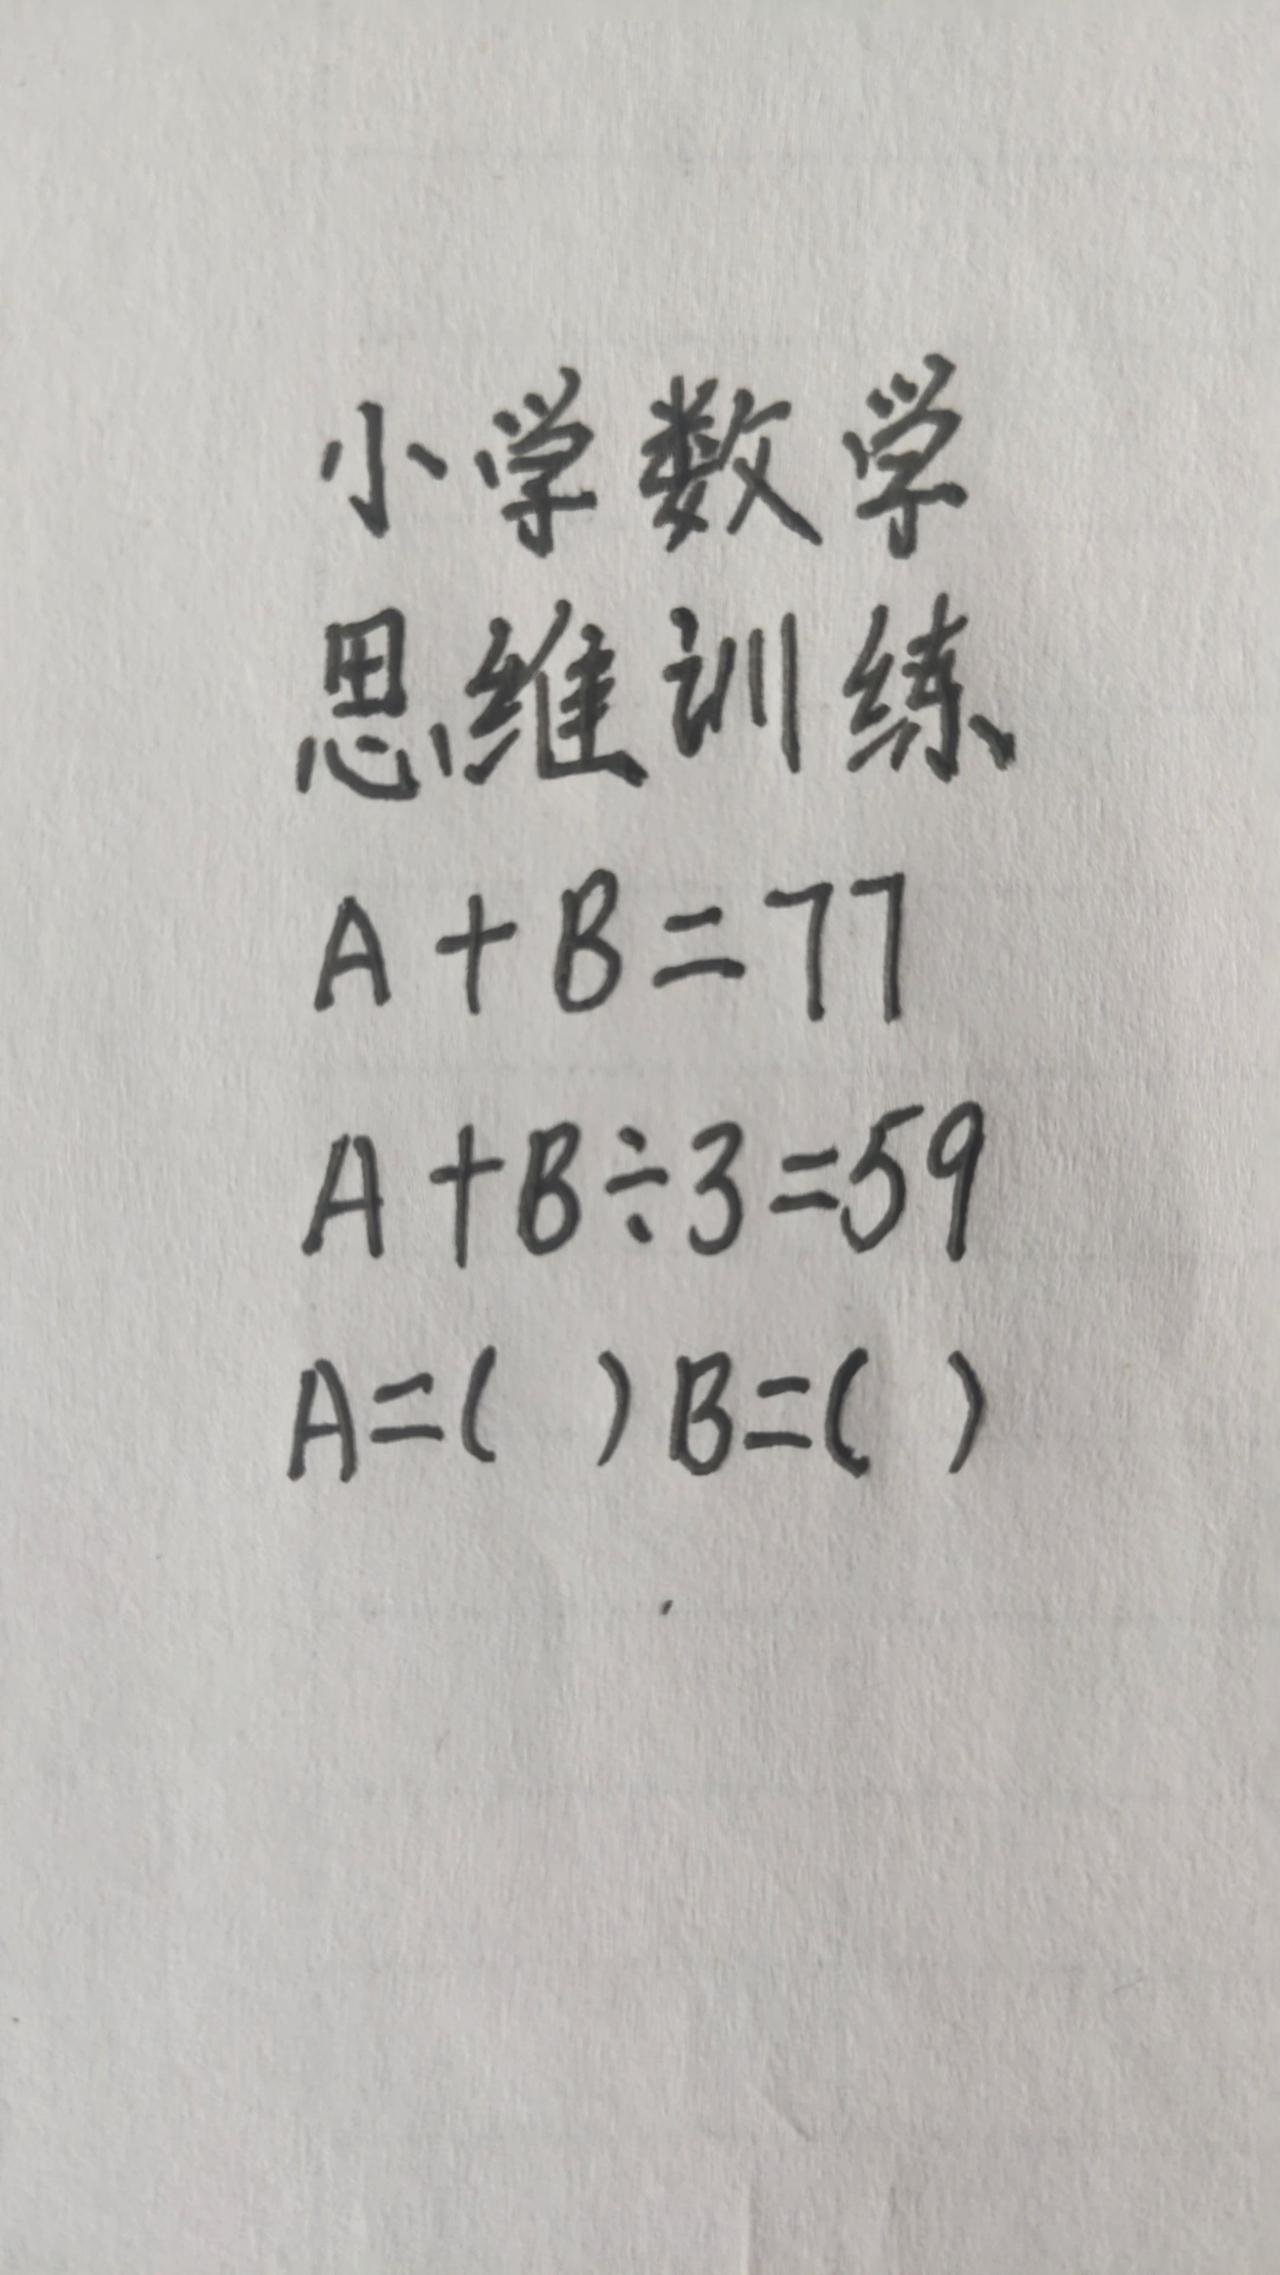 小学数学
思维训练
A+B=77
A+B÷3=59
A=( ) B=( )